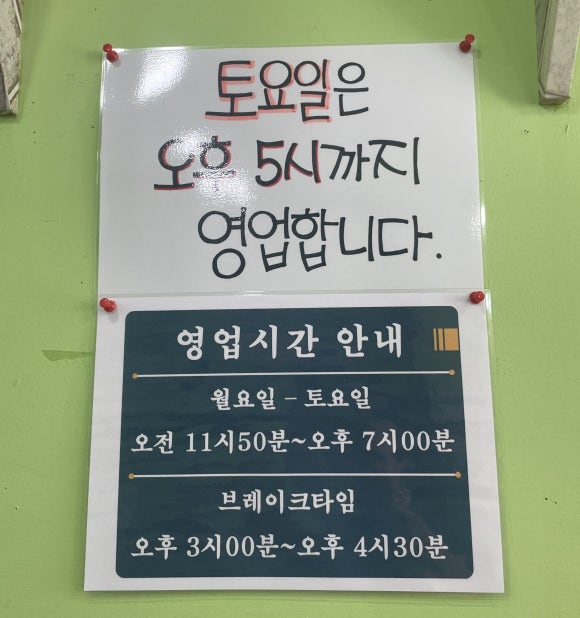 토요일은
오후 5시까지
영업합니다.
영업시간 안내
월요일 – 토요일
오전 11시50분~오후 7시00분
브레이크타임
오후 3시00분~오후 4시30분